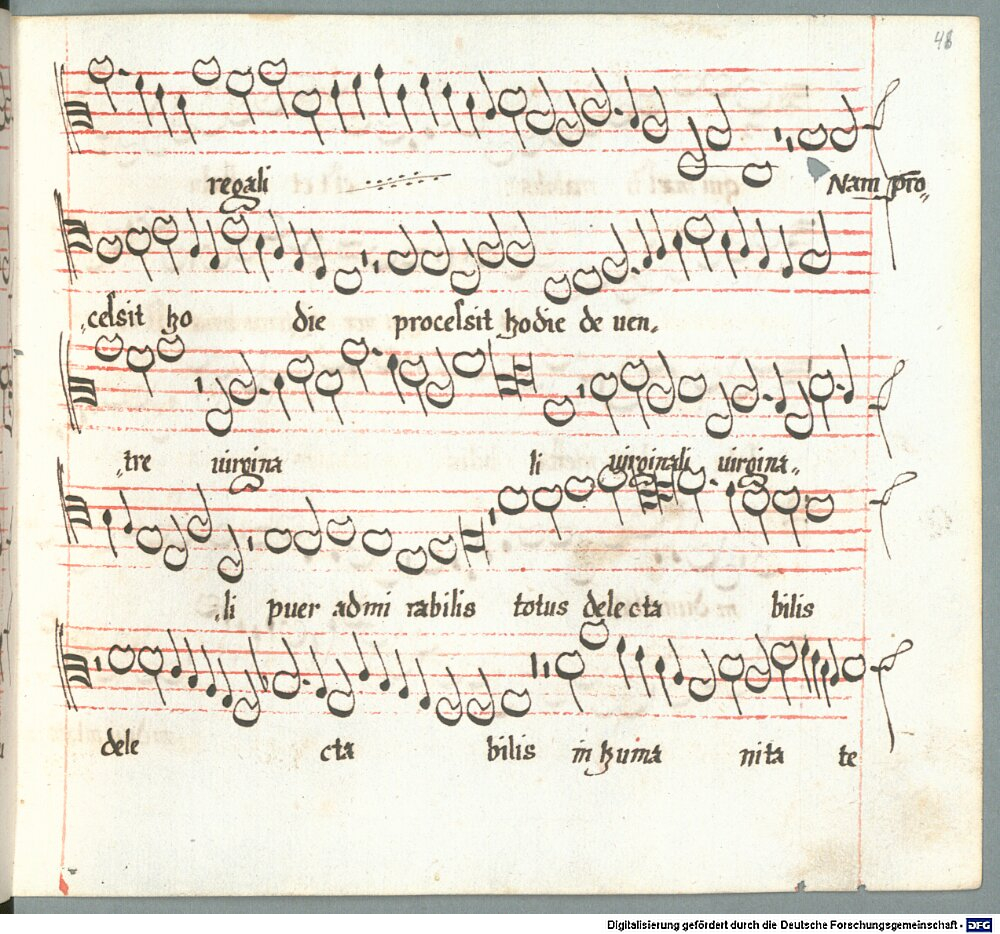 48
regali Nam pro„
„celsit hodie procelsit hodie de uen„
„tre uirginali uirginali uirgina„
„li puer admirabilis totus delectabilis
delectabilis in humanitate
Digitalisierung gefördert durch die Deutsche Forschungsgemeinschaft - DFG